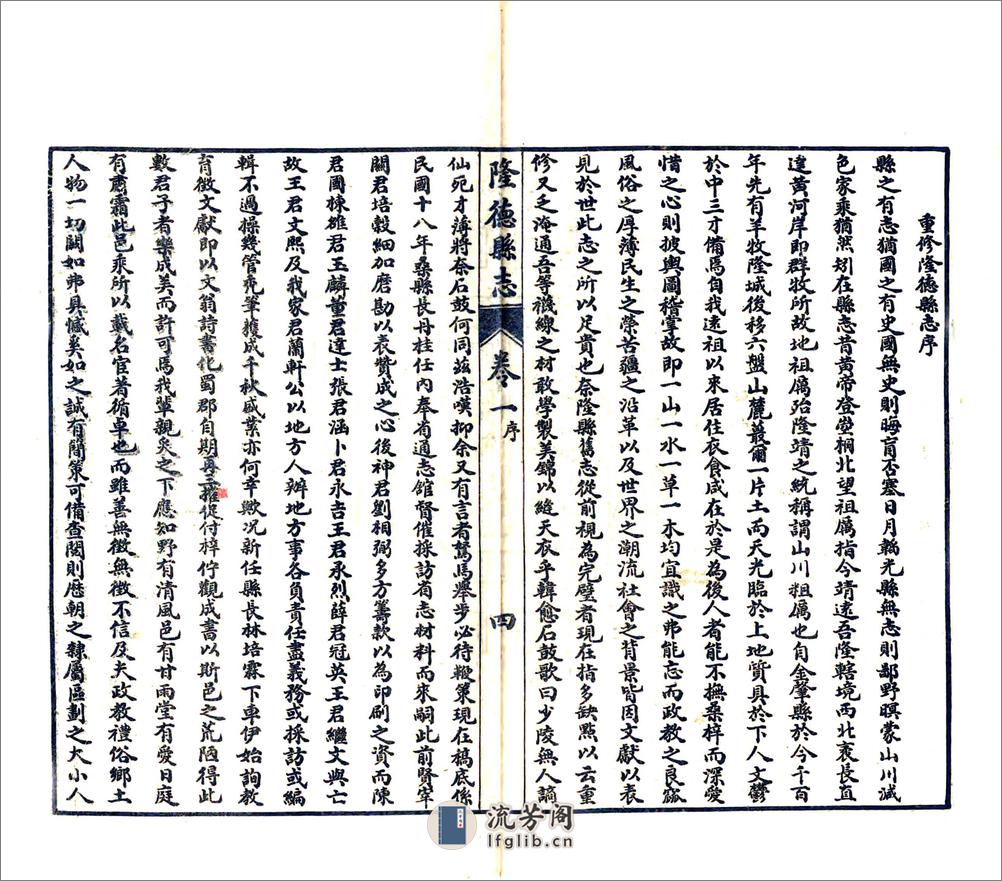 重修隆德縣志序
縣之有志猶國之有史國無史則晦盲否塞日月韜光縣無志則鄙野暝蒙山川減
色家乘猶然矧在縣志昔黃帝登崆峒北望祖厲指今靖遠吾隆轄境西北袤長直
達黃河岸即群牧所故地祖厲殆隆靖之統稱謂山川粗厲也自金肇縣於今千百
年先有羊牧隆城後移六盤山麓蕞爾一片土而天光臨於上地質具於下人文鬱
於中三才備焉自我遠祖以來居住衣食咸在於是為後人者能不撫桑梓而深愛
惜之心則披輿圖稽掌故即一山一水一草一木均宜識之弗能忘而政教之良窳
風俗之厚薄民生之榮苦疆之沿革以及世界之潮流社會之背景皆因文獻以表
見於世此志之所以足貴也奈隆縣舊志從前視為完璧者現在指多缺點以云重
修又乏淹通吾等襪線之材敢學製美錦以縫天衣乎韓愈石鼓歌曰少陵無人謫
隆德縣志 卷一 序 四
仙死才薄將奈石鼓何同玆浩嘆抑余又有言者駑馬舉步必待鞭策現在稿底係
民國十八年桑縣長丹桂任內奉省通志館督催採訪省志材料而來嗣此前賢宰
關君培穀細加磨勘以表贊成之心後神君劉相弼多方籌款以為印刷之資而陳
君國棟維君玉麟董君達士張君涵卜君永吉王君承烈薛君冠英王君繼文與亡
故王君文熙及我家君蘭軒公以地方人辦地方事各負責任盡義務或採訪或編
輯不過操幾管禿筆獲成千秋盛業亦何幸歟况新任縣長林培霖下車伊始詢教
育徵文獻即以文翁詩書化蜀郡自期再三催促付梓佇觀成書以斯邑之荒陋得此
數君子者樂成美而許可焉我輩觀炙之下應知野有清風邑有甘雨堂有愛日庭
有肅霜此邑乘所以載名宦著循卓也而雖善無徵無徵不信及夫政教禮俗鄉土
人物一切闕如弗具憾奚如之誠有簡策可備查閱則歷朝之隸屬區劃之大小人
流芳阁
lfglib.cn